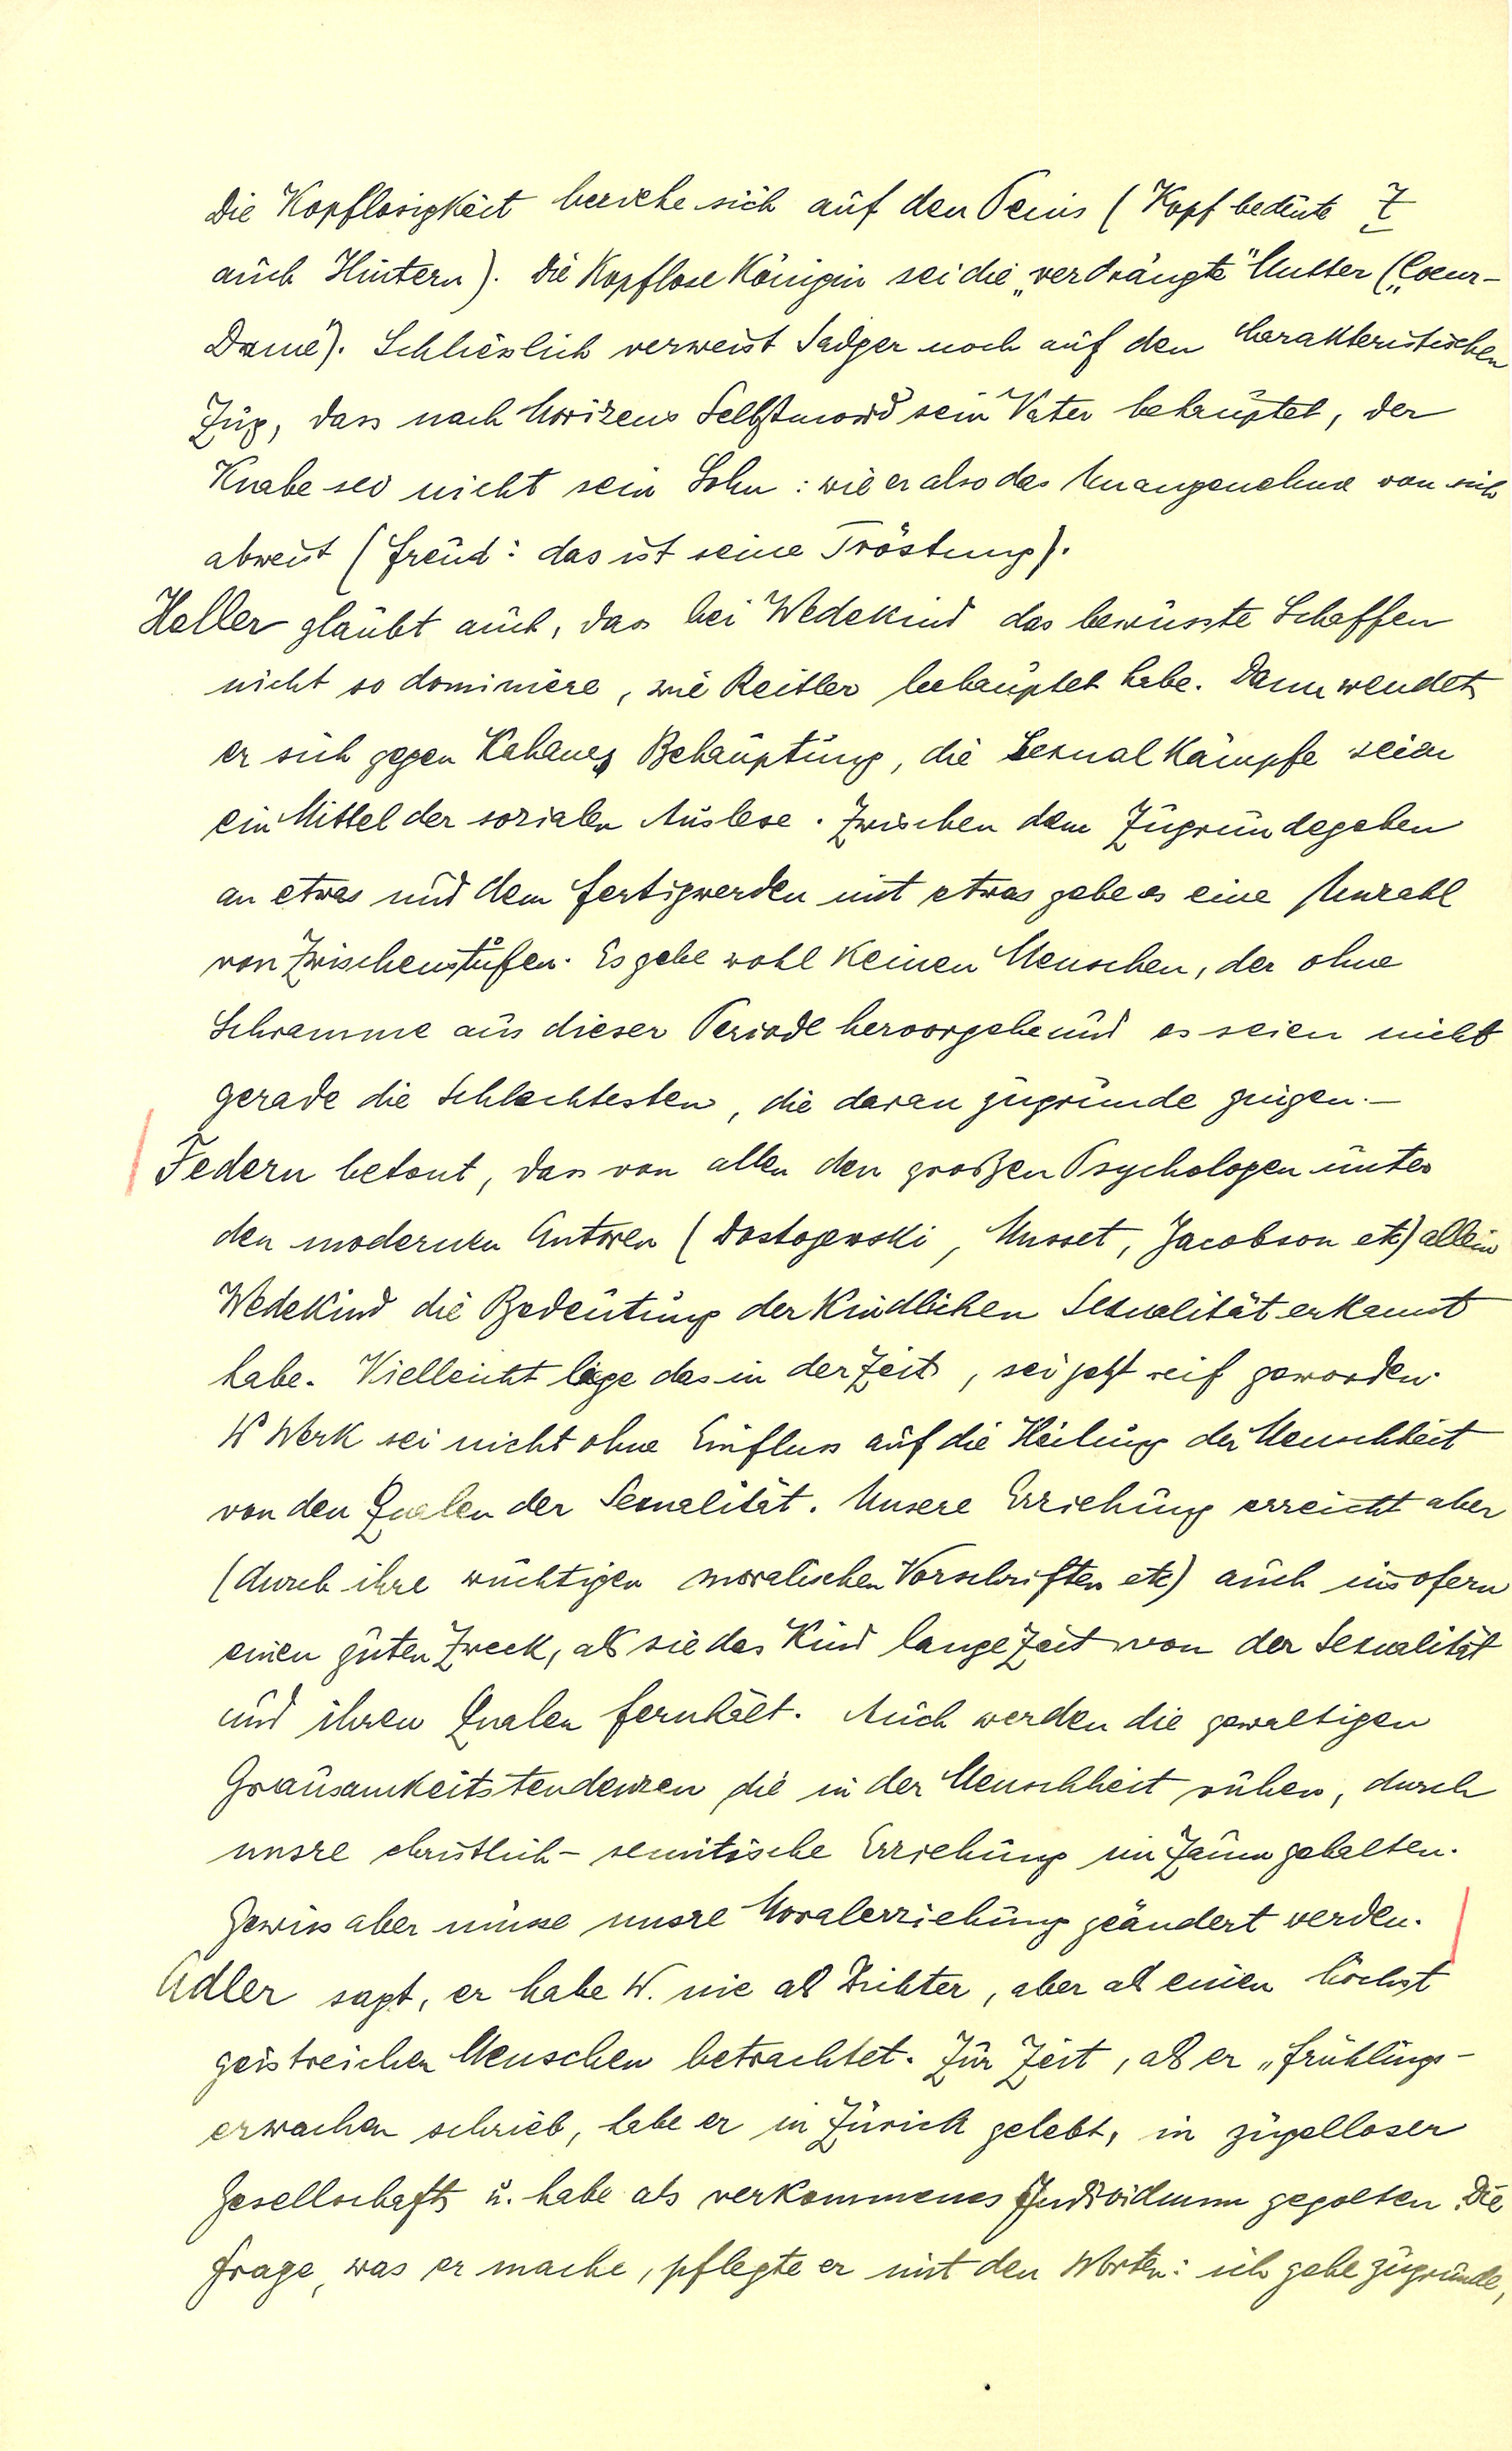 die Kopflosigkeit beziehe sich auf den Penis (Kopf bedeute 7
auch Hintern). Die Kopflose Königin sei die „verdrängte" Mutter („Coeur-
Dame"). Schliesslich verweist Sadger noch auf den charakteristischen
Zug, dass nach Morizens Selbstmord sein Vater behauptet, der
Knabe sei nicht sein Sohn: wie er also das Unangenehme von sich
abweist (Freud: das ist seine Tröstung).
Heller glaubt auch, dass bei Wedekind das bewusste Schaffen
nicht so dominiere, wie Reitler behauptet habe. Dann wendet
er sich gegen Kahanes Behauptung, die Sexualkämpfe seien
ein Mittel der sozialen Auslese. Zwischen dem Zugrundegehen
an etwas und dem Fertigwerden mit etwas gebe es eine Unzahl
von Zwischenstufen. Es gebe wohl keinen Menschen, der ohne
Schramme aus dieser Periode hervorgehe und es seien nicht
gerade die Schlechtesten, die daran zugrunde gingen.—
Federn betont, dass von allen den großen Psychologen unter
den modernen Autoren (Dostojewski, Musset, Jacobson etc) allein
Wedekind die Bedeutung der kindlichen Sexualität erkannt
habe. Vielleicht läge das in der Zeit, sei jetzt reif geworden.
W Werk sei nicht ohne Einfluss auf die Heilung der Menschheit
von den Qualen der Sexualität. Unsere Erziehung erreicht aber
(durch ihre wuchtigen moralischen Vorschriften etc) auch insofern
einen guten Zweck, als sie das Kind lange Zeit von der Sexualität
und ihren Qualen fernhält. Auch werden die gewaltigen
Grausamkeitstendenzen, die in der Menschheit ruhen, durch
unsre christlich-semitische Erziehung im Zaum gehalten.
Gewiss aber müsse unsre Moralerziehung geändert werden.
Adler sagt, er habe W. nie als Dichter, aber als einen höchst
geistreichen Menschen betrachtet. Zur Zeit, als er „Frühlings-
erwachen schrieb, habe er in Zürich gelebt, in zügelloser
Gesellschaft u. habe als verkommenes Individuum gegolten. Die
Frage, was er mache, pflegte er mit den Worten: ich gehe zugrunde,